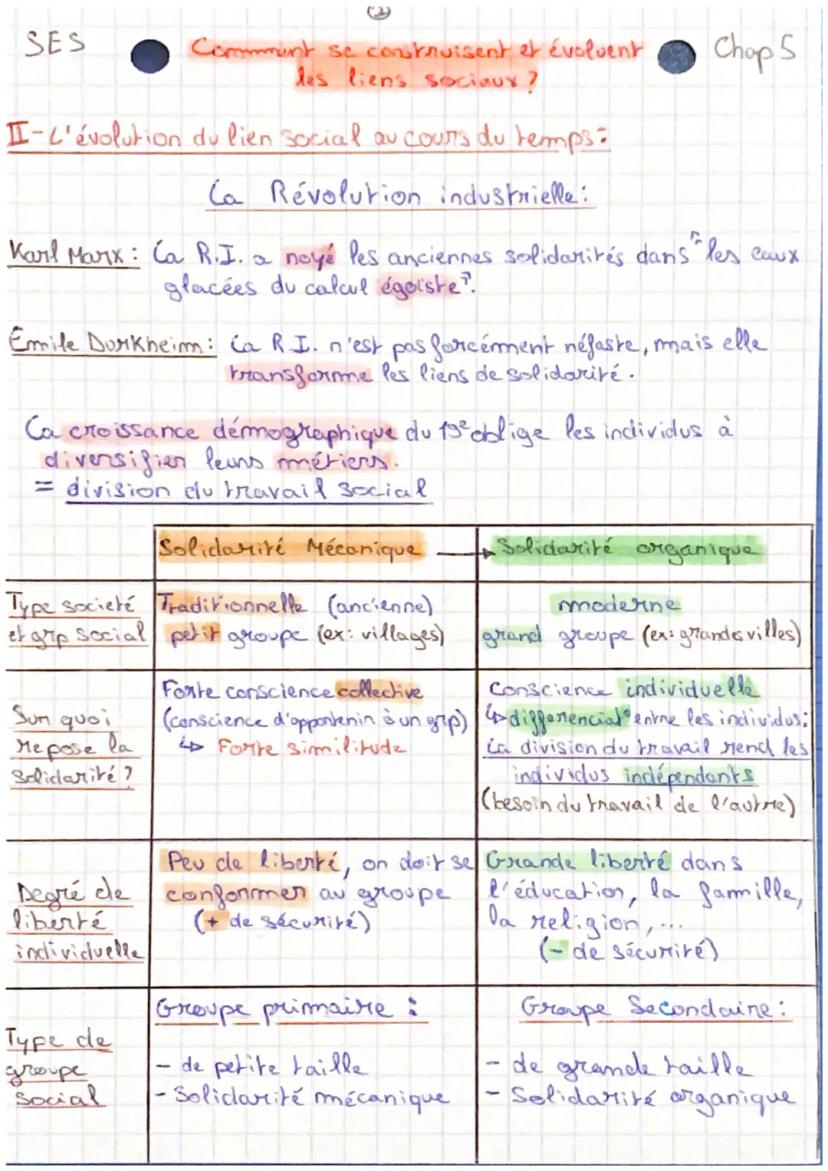 (2)
SES
Comment se construisent et évoluent
les liens sociaux ?
Chap 5
II - L'évolution du lien social au cours du temps :
La Révolution industrielle :
Karl Marx : La R.I. a noyé les anciennes solidarités dans "les eaux
glacées du calcul égoïste".
Émile Durkheim : La R.I. n'est pas forcément néfaste, mais elle
transforme les liens de solidarité.
La croissance démographique du 19e oblige les individus à
diversifier leurs métiers.
= division du travail social
Solidarité Mécanique → Solidarité organique
Type societé
et grp social
Traditionnelle (ancienne)
petit groupe (ex: villages)
moderne
grand groupe (ex: grandes villes)
Sur quoi
repose la
solidarité ?
Forte conscience collective
(conscience d'appartenir à un grp)
↳ Forte similitude
Conscience individuelle
↳ différencial° entre les individus:
La division du travail rend les
individus indépendants
(besoin du travail de l'autre)
Degré de
liberté
individuelle
Peu de liberté, on doit se
conformer au groupe
(+ de sécurité)
Grande liberté dans
l'éducation, la famille,
la religion, ...
(- de sécurité)
Type de
groupe
social
Groupe primaire :
- de petite taille
- Solidarité mécanique
Groupe Secondaire :
- de grande taille
- Solidarité organique